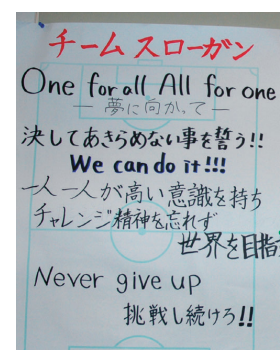 チームスローガン
One for all All for one
― 夢に向かって ―
決してあきらめない事を誓う!!
We can do it!!!
一人一人が高い意識を持ち
チャレンジ精神を忘れず
世界を目指す
Never give up
挑戦し続けろ!!